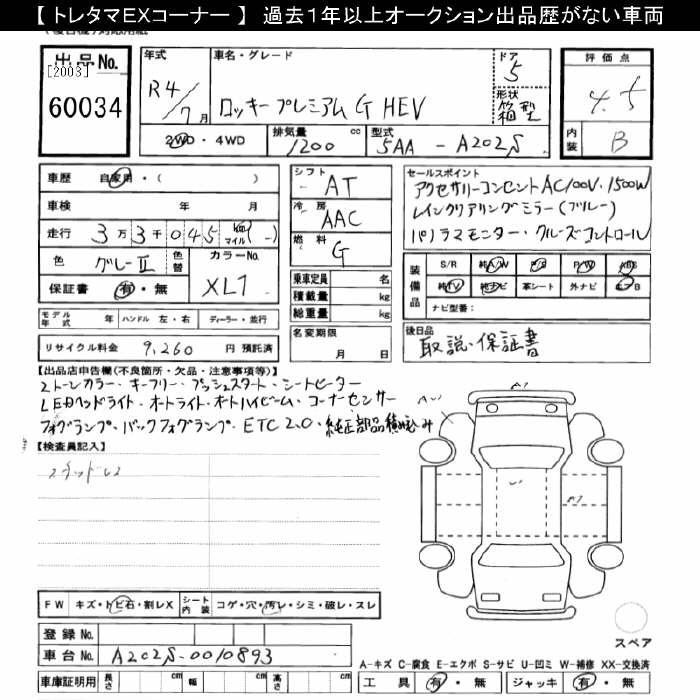 【 トレタマEXコーナー 】 過去1年以上オークション出品歴がない車両
出品No.
[2003]
60034
年式
R4/7月
車名・グレード
ロッキー プレミアム G HEV
ドア
5
形状
箱型
評価点
4.5
内装
B
2WD・4WD
排気量
1200 cc
型式
5AA - A202S
車歴 自家用・( )
車検 年 月
走行 3万3千045 km マイル( - )
色 グレーⅡ
色替
カラーNo.
XL7
保証書 有・無
シフト
AT
冷房
AAC
燃料
G
乗車定員 名
積載量 kg
総重量 kg
名変期限
月 日
セールスポイント
アクセサリーコンセントAC100V・1500W
レインクリアリングミラー(ブルー)
パノラマモニター・クルーズコントロール
装備品
S/R 純A/W P/S P/W ABS
純TV 純ナビ 革シート 外ナビ エアB
ナビ型番:
モデル年式 年 ハンドル 左・右 ディーラー・並行
リサイクル料金 9,260 円 預託済
後日品
取説・保証書
【出品店申告欄(不良箇所・欠品・注意事項等)】
2トーンカラー・キーフリー・プッシュスタート・シートヒーター
LEDヘッドライト・オートライト・オートハイビーム・コーナーセンサー
フォグランプ・バックフォグランプ・ETC2.0・純正部品積込み
【検査員記入】
スタッドレス
FW キズ・トビ石・割レX
シート内装 コゲ・穴・汚レ・シミ・破レ・スレ
登録No.
車台No. A202S-0010893
車庫証明用 長さ cm 幅 cm 高さ cm
スペア
A-キズ C-腐食 E-エクボ S-サビ U-凹ミ W-補修 XX-交換済
工具 有・無 ジャッキ 有・無